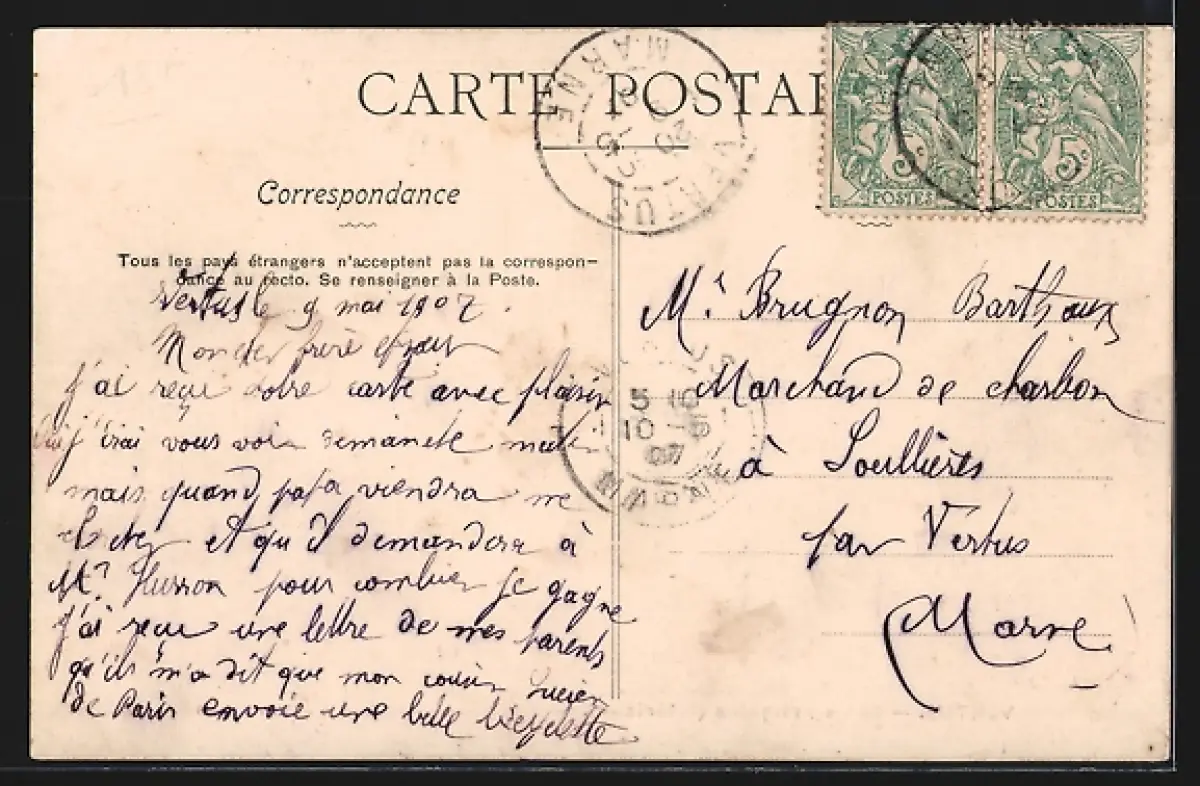 CARTE POSTAL
Correspondance
Tous les pays étrangers n'acceptent pas la correspon-
dance au recto. Se renseigner à la Poste.
Vertus le 9 mai 1907.
Mon cher frère
j'ai reçu votre carte avec plaisir
j'irai vous voir
mais quand papa viendra me
et qu'il demandera à
Mr. Husson pour combien je gagne
j'ai reçu une lettre de mes parents
qu'ils m'a dit que mon cousin Lucien
de Paris envoie une belle bicyclette
VERTUS
MARNE
20
5
5c
POSTES
5c
POSTES
Mr Brugnon
Marchand de charbon
à Soullières
par Vertus
Marne
5
10
07